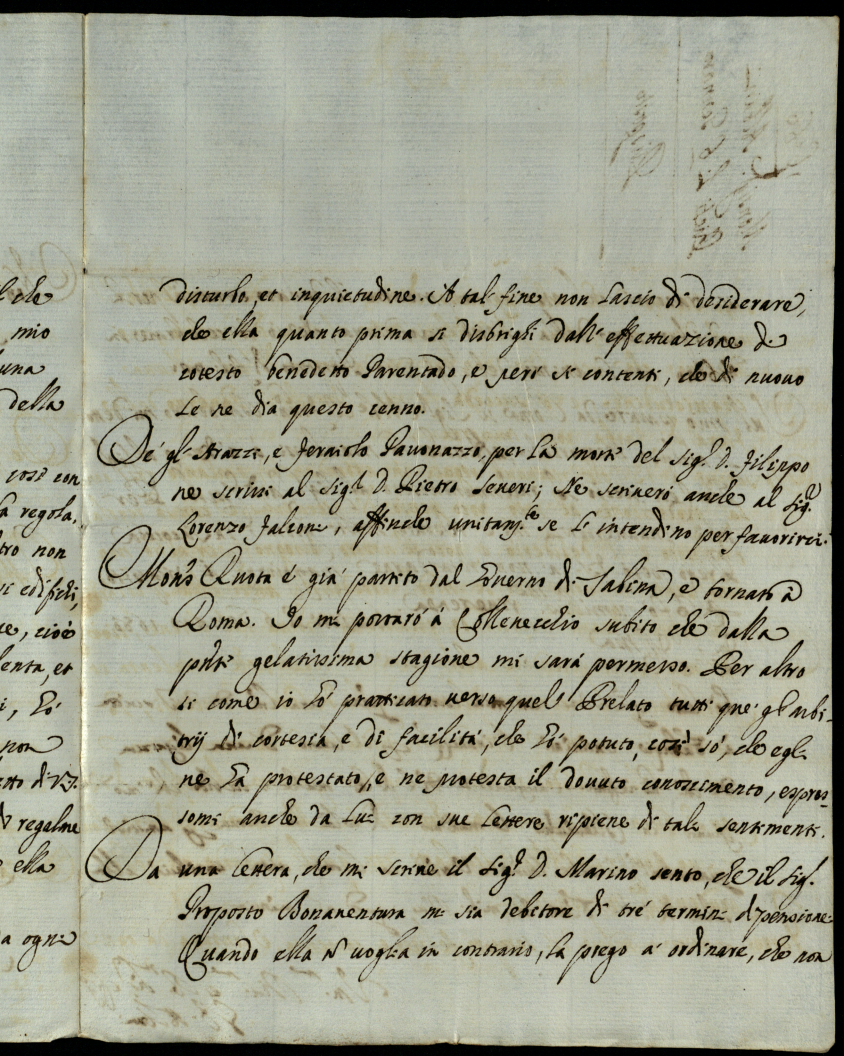 disturbo, et inquietudine. A tal fine non lascio di desiderare,
che ella quanto prima si disbrighi dall'effettuazione di
cotesto benedetto Parentado, e però si contenti, che di nuovo
Le ne dia questo cenno.
De gl'Arazzi, e feraiolo Pavonazzo, per la morte del Sig.r D. Filippo
ne scrissi al Sig.r D. Pietro Severi; Ne scriverò anche al Sig.r
Lorenzo Falcone, affinche unitam.te se l'intendino per favorirci.
Mons.r Ruota è già partito dal Governo di Sabina, e tornato a
Roma. Io mi portarò à Collenecchio subito che dalla
pñte gelatissima stagione mi sarà permesso. Per altro
si come io hò pratticato verso quel Prelato tutti que' gl'arbi-
trij di cortesia, e di facilità, che hò potuto, così sò, che egli
ne hà protestato, e ne protesta il dovuto conoscimento, espres-
somi anche da Lui con sue lettere ripiene di tali sentimenti.
Da una lettera, che mi scrive il Sig.r D. Marino sento, che il Sig.r
Proposto Bonaventura mi sia debitore di trè termini di pensione.
Quando ella ñ voglia in contrario, la prego à ordinare, che non
l che
mio
una
della
così con
la regola,
tro non
edifici,
ce, cioè
lenta, et
i, hò
non
regalme
ella
a ogni